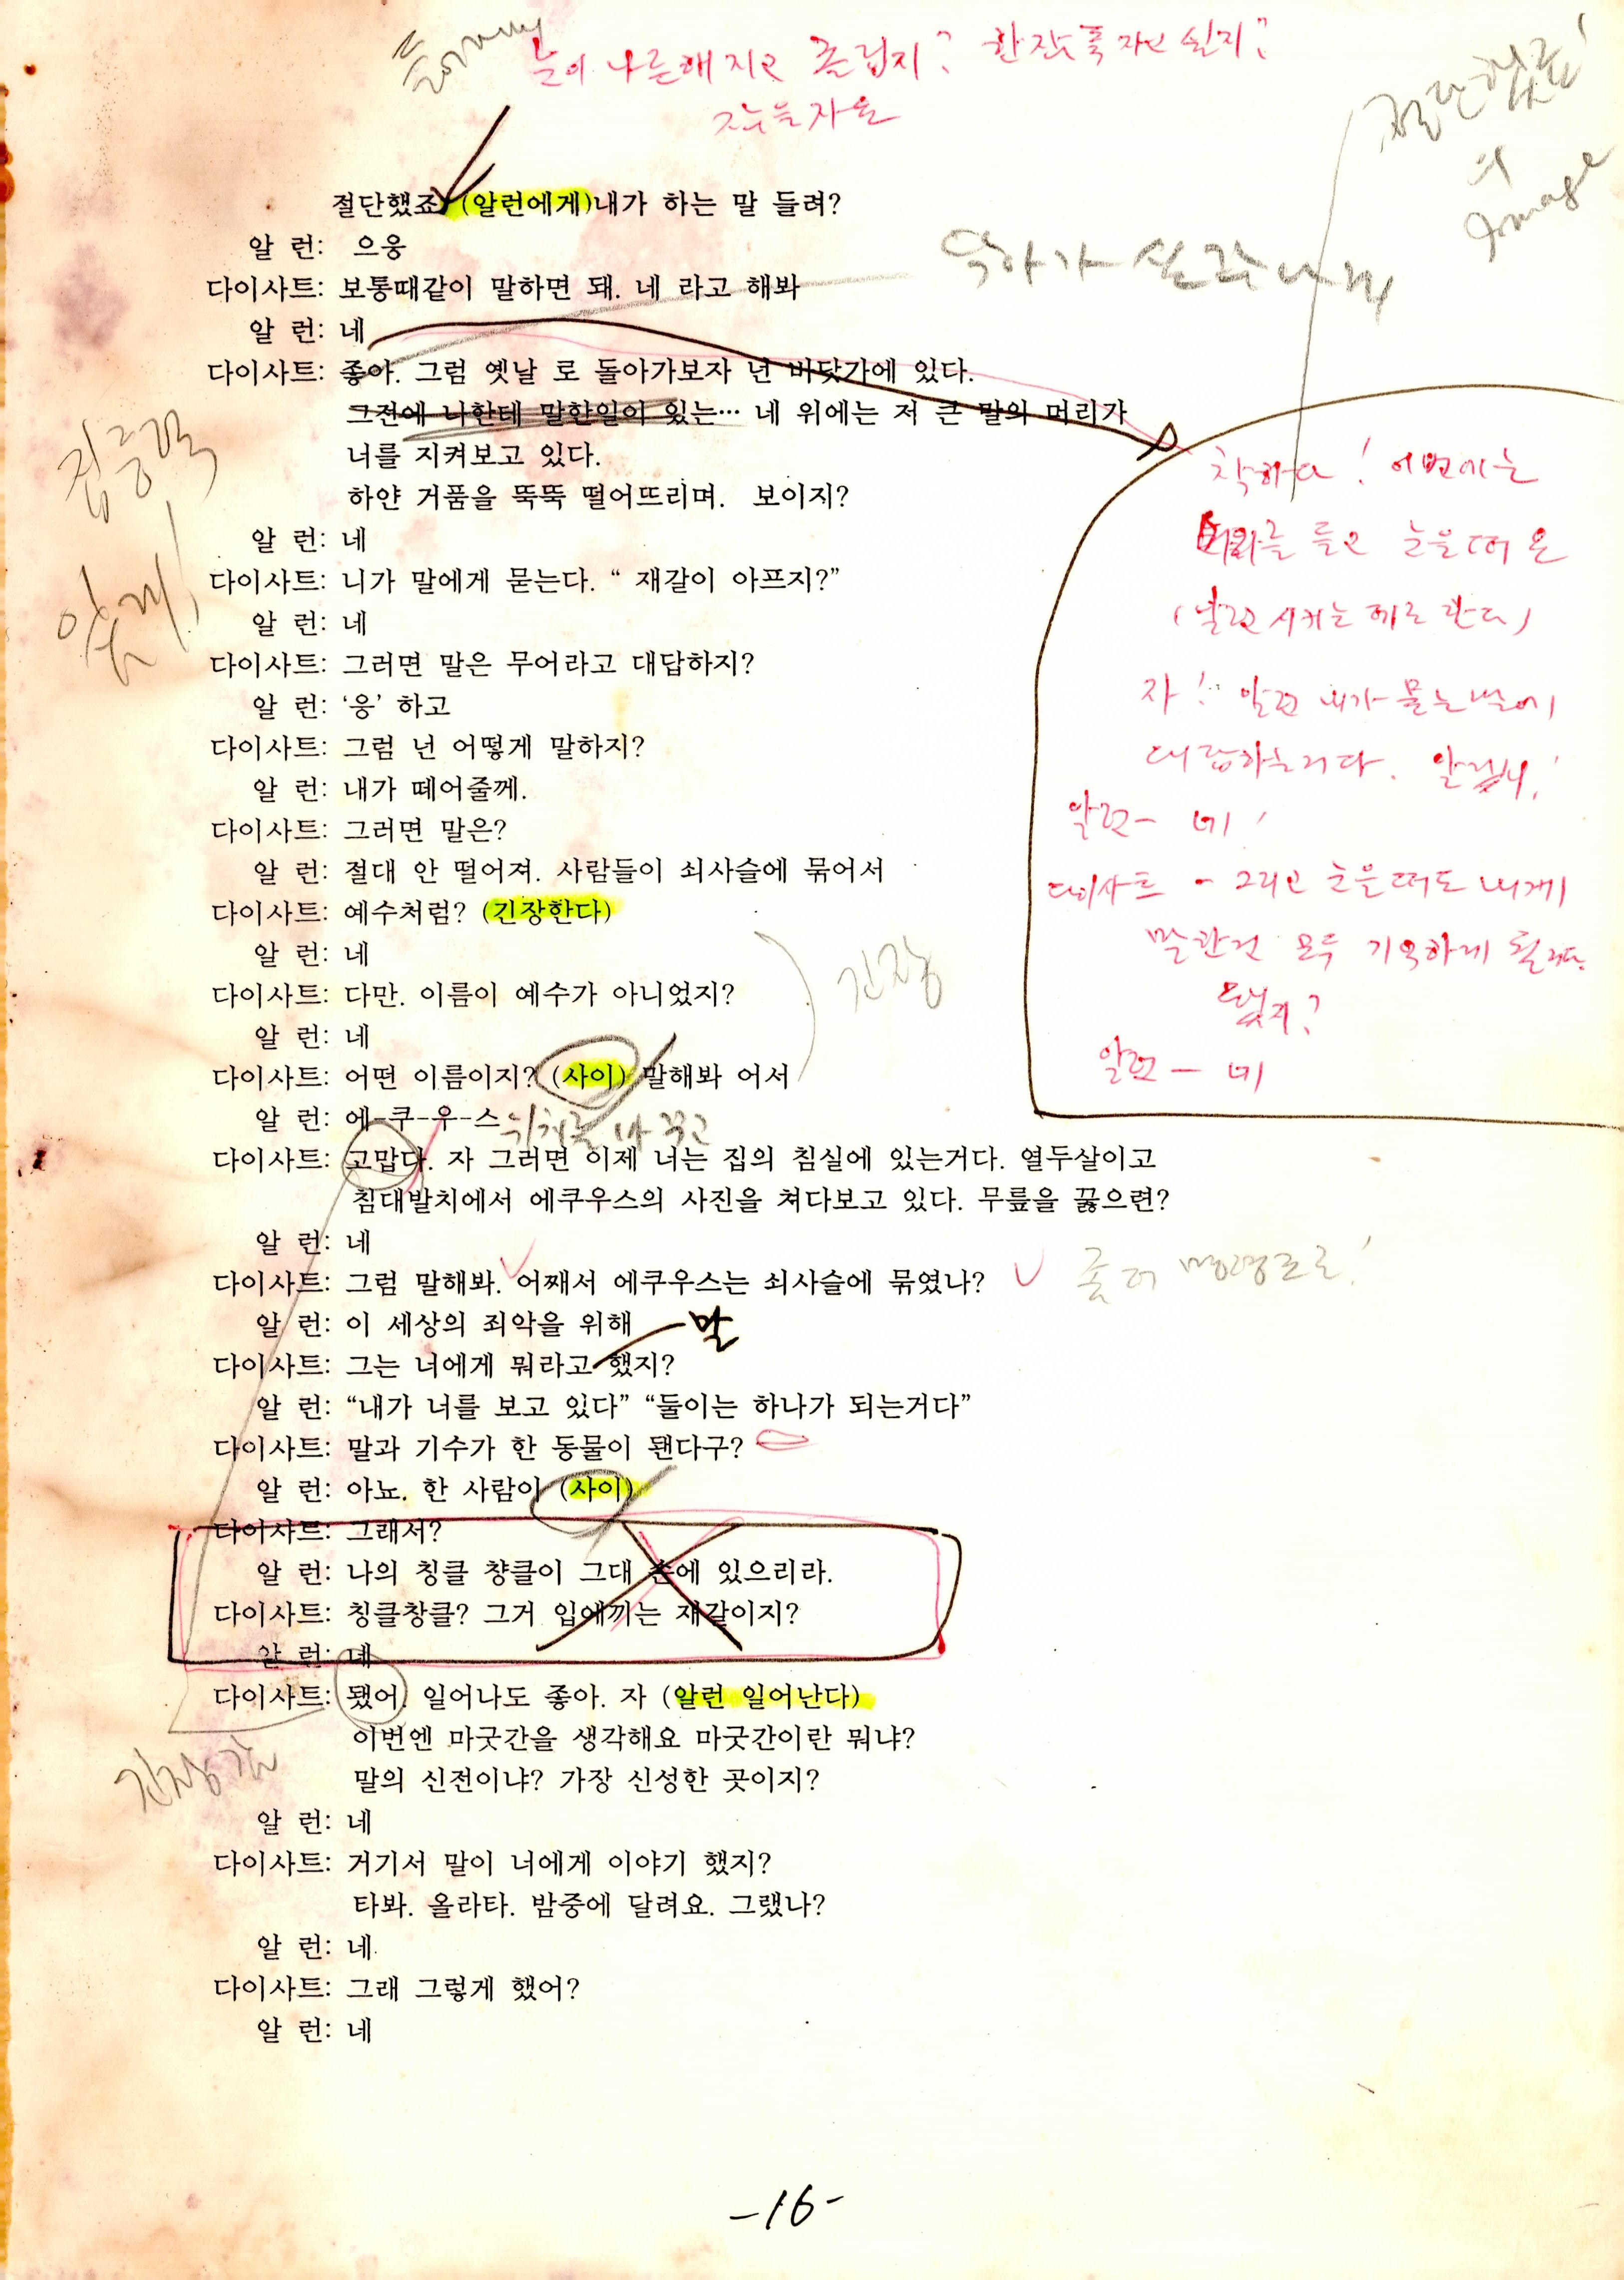 눈이 나른해지고 졸립지? 한잠 푹 자고 싶지?
절단했죠. (알런에게)내가 하는 말 들려?
알 런: 으응
다이사트: 보통때같이 말하면 돼. 네 라고 해봐
알 런: 네
다이사트: 좋아. 그럼 옛날 로 돌아가보자 넌 바닷가에 있다.
그전에 나한테 말한일이 있는… 네 위에는 저 큰 말의 머리가
너를 지켜보고 있다.
하얀 거품을 뚝뚝 떨어뜨리며. 보이지?
알 런: 네
다이사트: 니가 말에게 묻는다. “ 재갈이 아프지?”
알 런: 네
다이사트: 그러면 말은 무어라고 대답하지?
알 런: ‘응’ 하고
다이사트: 그럼 넌 어떻게 말하지?
알 런: 내가 떼어줄께.
다이사트: 그러면 말은?
알 런: 절대 안 떨어져. 사람들이 쇠사슬에 묶어서
다이사트: 예수처럼? (긴장한다)
알 런: 네
다이사트: 다만. 이름이 예수가 아니었지?
알 런: 네
다이사트: 어떤 이름이지? (사이) 말해봐 어서
알 런: 에-쿠-우-스
다이사트: 고맙다. 자 그러면 이제 너는 집의 침실에 있는거다. 열두살이고
침대발치에서 에쿠우스의 사진을 쳐다보고 있다. 무릎을 꿇으련?
알 런: 네
다이사트: 그럼 말해봐. 어째서 에쿠우스는 쇠사슬에 묶였나?
알 런: 이 세상의 죄악을 위해
말
다이사트: 그는 너에게 뭐라고 했지?
알 런: “내가 너를 보고 있다” “둘이는 하나가 되는거다”
다이사트: 말과 기수가 한 동물이 됀다구?
알 런: 아뇨. 한 사람이 (사이)
다이사트: 그래서?
알 런: 나의 칭클 챵클이 그대 손에 있으리라.
다이사트: 칭클창클? 그거 입에끼는 재갈이지?
알 런: 네
다이사트: 됐어. 일어나도 좋아. 자 (알런 일어난다)
이번엔 마굿간을 생각해요 마굿간이란 뭐냐?
말의 신전이냐? 가장 신성한 곳이지?
알 런: 네
다이사트: 거기서 말이 너에게 이야기 했지?
타봐. 올라타. 밤중에 달려요. 그랬나?
알 런: 네.
다이사트: 그래 그렇게 했어?
알 런: 네
집중력
있게!
긴장
긴장감
절단했죠!
의
Image
착하다! 이번에는
들고 눈을 떠요
(알런 시키는 데로 한다)
자! 알런 내가 묻는 말에
대답하는거다. 알겠니!
알런 - 네!
다이사트 - 그리고 눈을 떠도 내게
말한건 모두 기억하게 될거다.
됐지?
알런 - 네
-16-